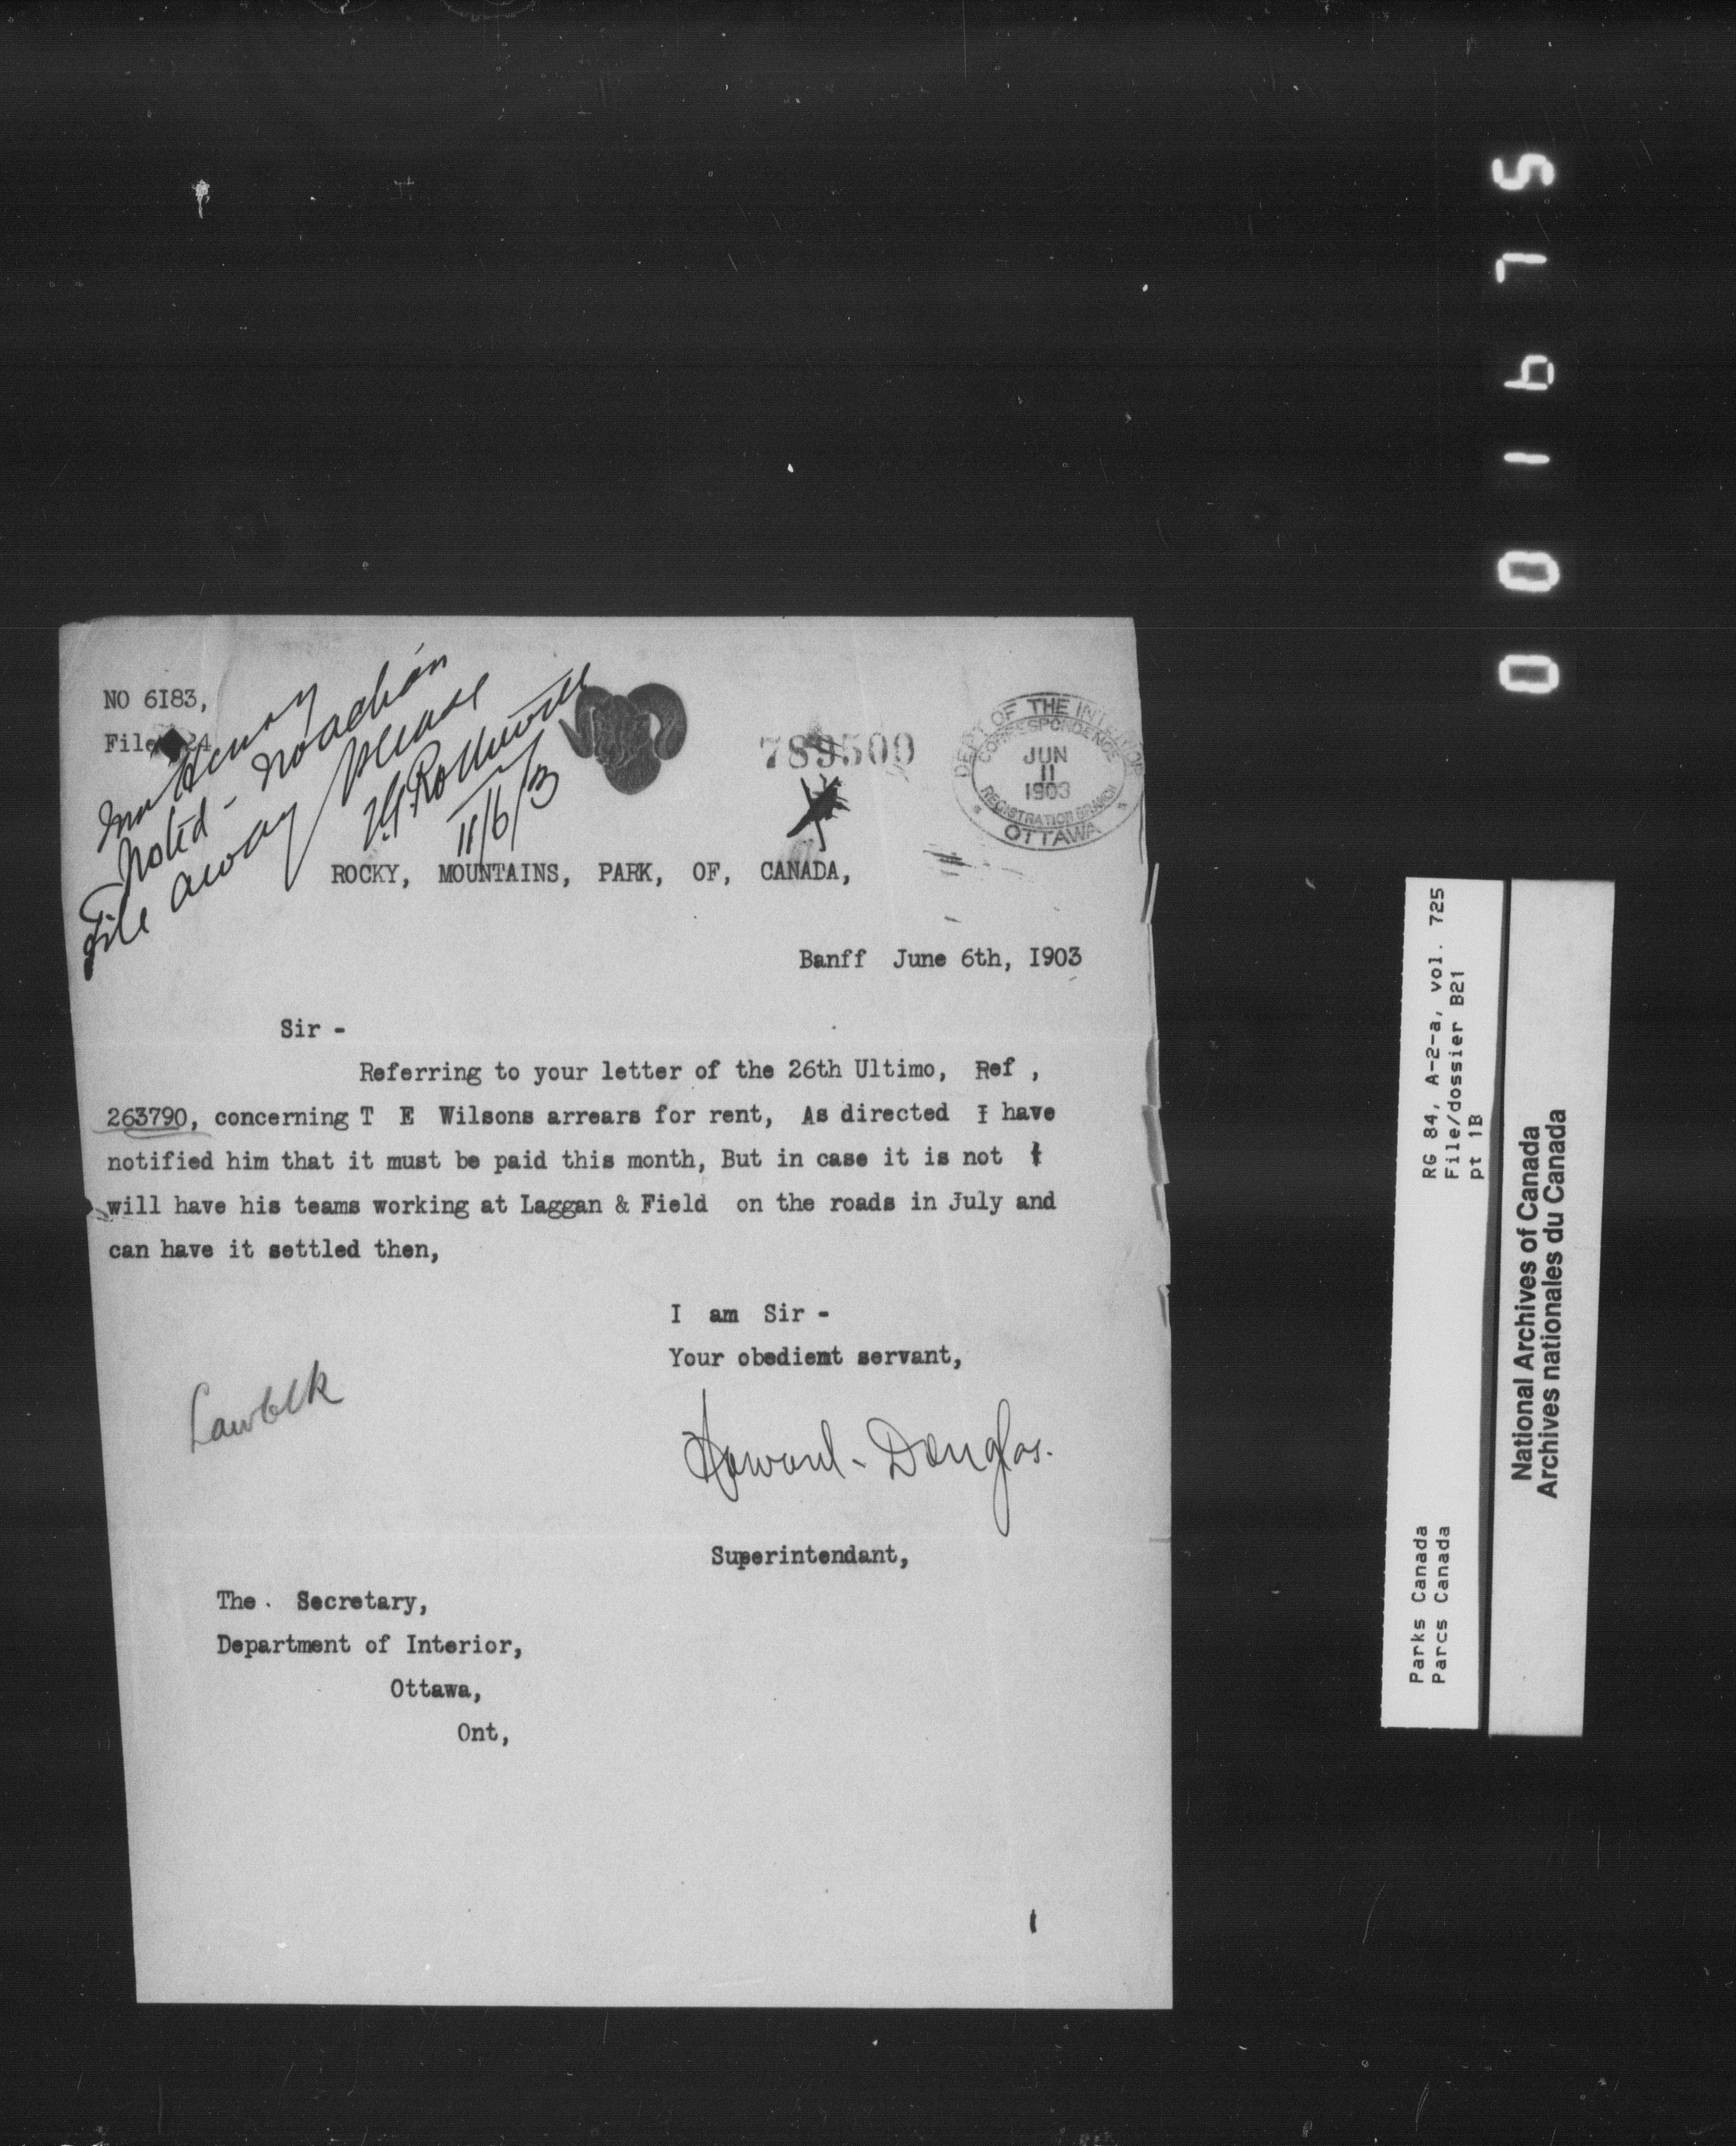 NO 6I83,
File 24
Mr Henry
Noted - no action
File away please
11/6/3
789500
DEPT OF THE INTERIOR
CORRESPONDENCE
JUN
11
1903
REGISTRATION BRANCH
OTTAWA
ROCKY, MOUNTAINS, PARK, OF, CANADA,
Banff June 6th, I903
Sir -
Referring to your letter of the 26th Ultimo, Ref ,
263790, concerning T E Wilsons arrears for rent, As directed I have
notified him that it must be paid this month, But in case it is not I
will have his teams working at Laggan & Field on the roads in July and
can have it settled then,
I am Sir -
Your obedient servant,
Howard Douglas.
Superintendant,
The . Secretary,
Department of Interior,
Ottawa,
Ont,
001675
RG 84, A-2-a, vol. 725
File/dossier B21
pt 1B
Parks Canada
Parcs Canada
National Archives of Canada
Archives nationales du Canada